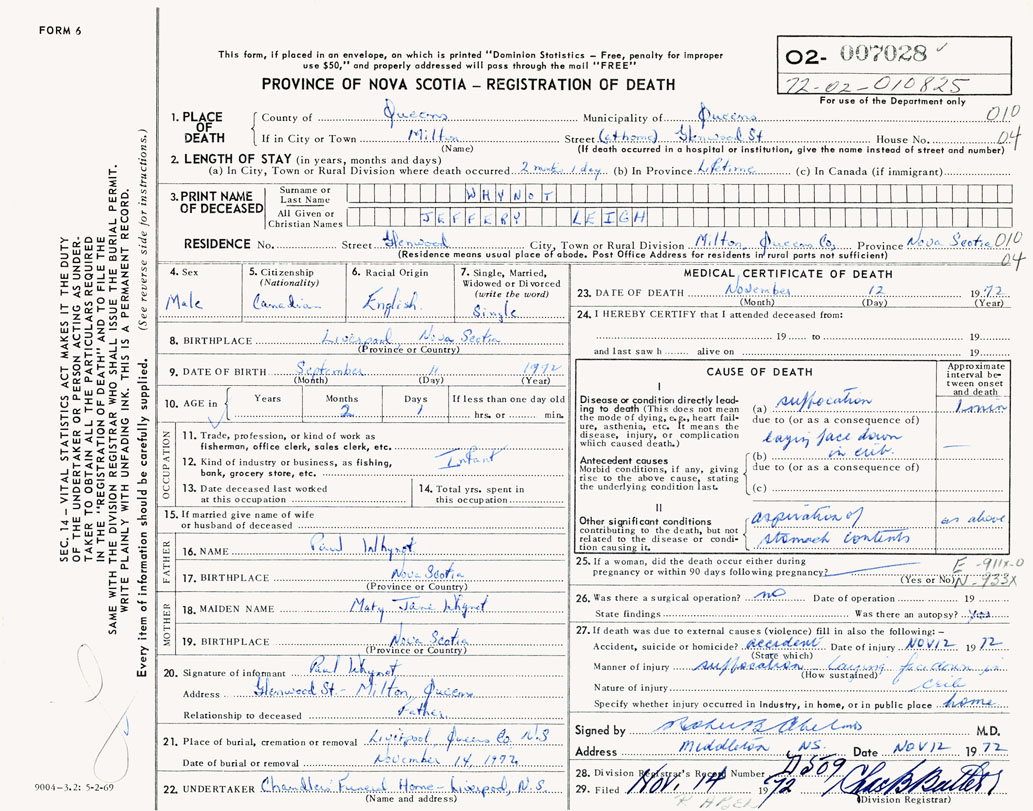 FORM 6
This form, if placed in an envelope, on which is printed "Dominion Statistics – Free, penalty for improper
use $50," and properly addressed will pass through the mail "FREE"
PROVINCE OF NOVA SCOTIA – REGISTRATION OF DEATH
02- 007028 ✓
72-02-010825
For use of the Department only
1. PLACE OF DEATH
County of Queens Municipality of Queens 010
If in City or Town Milton Street (at home) Glenwood St House No. 04
(Name) (If death occurred in a hospital or institution, give the name instead of street and number)
2. LENGTH OF STAY (in years, months and days)
(a) In City, Town or Rural Division where death occurred 2 months 1 day (b) In Province Lifetime (c) In Canada (if immigrant)
3. PRINT NAME OF DECEASED
Surname or Last Name WHYNOT
All Given or Christian Names JEFFERY LEIGH
RESIDENCE No. Street Glenwood City, Town or Rural Division Milton, Queens Co. Province Nova Scotia 010
(Residence means usual place of abode. Post Office Address for residents in rural parts not sufficient) 04
4. Sex
Male
5. Citizenship
(Nationality)
Canadian
6. Racial Origin
English
7. Single, Married,
Widowed or Divorced
(write the word)
Single
8. BIRTHPLACE Liverpool Nova Scotia
(Province or Country)
9. DATE OF BIRTH September 11 1972
(Month) (Day) (Year)
10. AGE in
Years Months Days If less than one day old
2 1 hrs. or min.
OCCUPATION
11. Trade, profession, or kind of work as
fisherman, office clerk, sales clerk, etc.
12. Kind of industry or business, as fishing,
bank, grocery store, etc.
Infant
13. Date deceased last worked
at this occupation
14. Total yrs. spent in
this occupation
15. If married give name of wife
or husband of deceased
FATHER
16. NAME Paul Whynot
17. BIRTHPLACE Nova Scotia
(Province or Country)
MOTHER
18. MAIDEN NAME Mary Jane Whynot
19. BIRTHPLACE Nova Scotia
(Province or Country)
20. Signature of informant Paul Whynot
Address Glenwood St - Milton, Queens
Relationship to deceased Father
21. Place of burial, cremation or removal Liverpool, Queens Co, N.S
Date of burial or removal November 14, 1972
22. UNDERTAKER Chandlers' Funeral Home - Liverpool, N.S.
(Name and address)
MEDICAL CERTIFICATE OF DEATH
23. DATE OF DEATH November 12 1972
(Month) (Day) (Year)
24. I HEREBY CERTIFY that I attended deceased from:
19 to 19
and last saw h alive on 19
CAUSE OF DEATH
Approximate
interval be-
tween onset
and death
I
Disease or condition directly lead-
ing to death (This does not mean
the mode of dying, e.g., heart fail-
ure, asthenia, etc. It means the
disease, injury, or complication
which caused death.)
(a) suffocation 1 min
due to (or as a consequence of)
laying face down
in crib.
Antecedent causes
Morbid conditions, if any, giving
rise to the above cause, stating
the underlying condition last.
(b)
due to (or as a consequence of)
(c)
II
Other significant conditions
contributing to the death, but not
related to the disease or condi-
tion causing it.
aspiration of as above
stomach contents
25. If a woman, did the death occur either during
pregnancy or within 90 days following pregnancy?
(Yes or No)
E-911X-0
N-933X
26. Was there a surgical operation? no Date of operation 19
State findings Was there an autopsy? yes
27. If death was due to external causes (violence) fill in also the following: –
Accident, suicide or homicide? accident Date of injury NOV 12 1972
(State which)
Manner of injury suffocation - laying face down in
(How sustained)
crib
Nature of injury
Specify whether injury occurred in industry, in home, or in public place home
Signed by M.D.
Address Middleton NS. Date NOV 12 1972
28. Division Registrar's Record Number
29. Filed Nov. 14 1972
(Division Registrar)
SEC. 14 – VITAL STATISTICS ACT MAKES IT THE DUTY
OF THE UNDERTAKER OR PERSON ACTING AS UNDER-
TAKER TO OBTAIN ALL THE PARTICULARS REQUIRED
IN THE "REGISTRATION OF DEATH" AND TO FILE THE
SAME WITH THE DIVISION REGISTRAR WHO SHALL ISSUE THE BURIAL PERMIT.
WRITE PLAINLY WITH UNFADING INK. THIS IS A PERMANENT RECORD.
Every item of information should be carefully supplied. (See reverse side for instructions.)
9004-3.2: 5-2-69